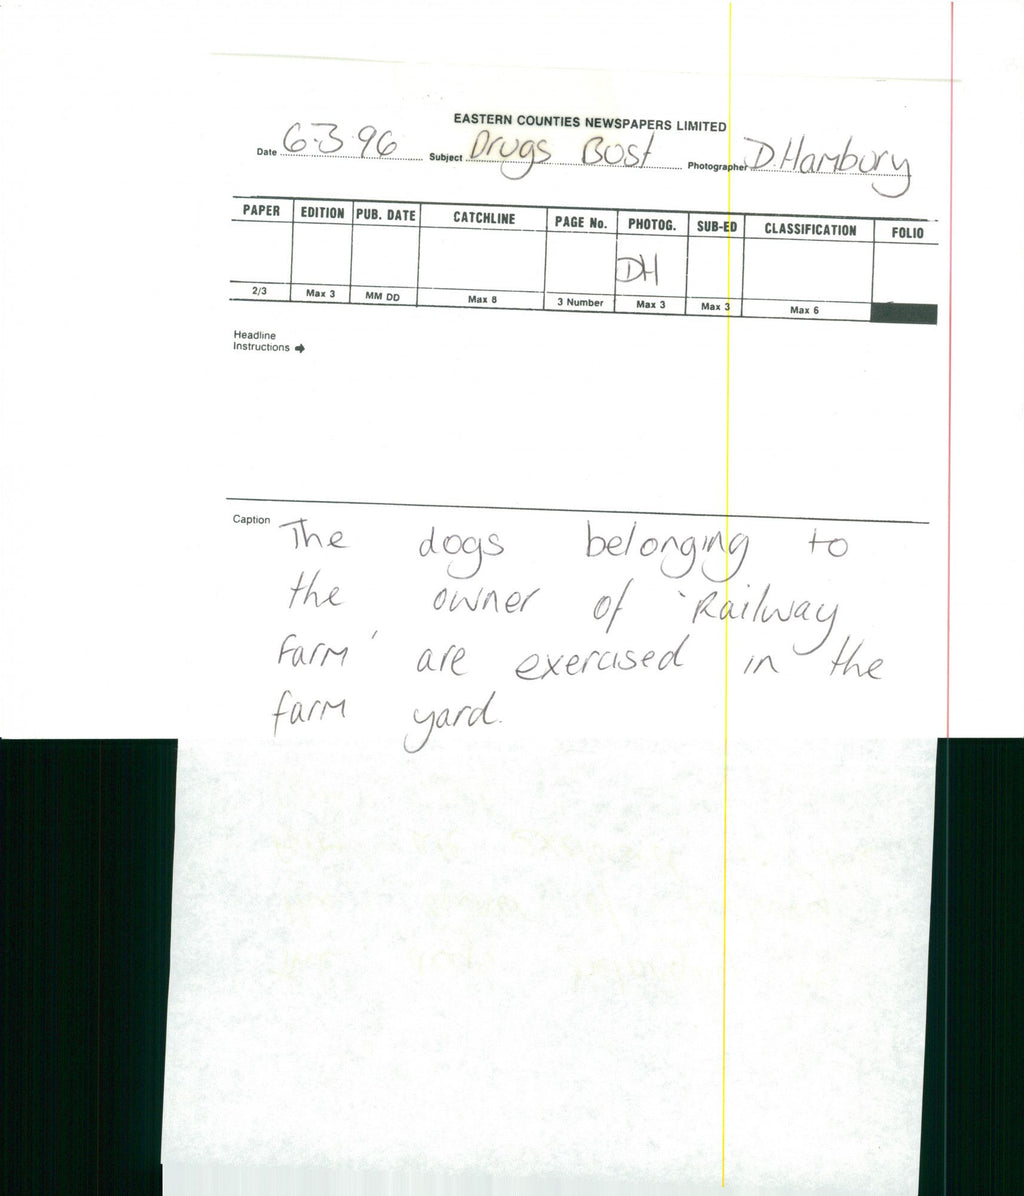 EASTERN COUNTIES NEWSPAPERS LIMITED
Date 6.3.96 Subject Drugs Bust Photographer D.Hambury
PAPER EDITION PUB. DATE CATCHLINE PAGE No. PHOTOG. SUB-ED CLASSIFICATION FOLIO
DH
2/3 Max 3 MM DD Max 8 3 Number Max 3 Max 3 Max 6
Headline
Instructions
Caption The dogs belonging to
the owner of 'Railway
Farm' are exercised in the
farm yard.